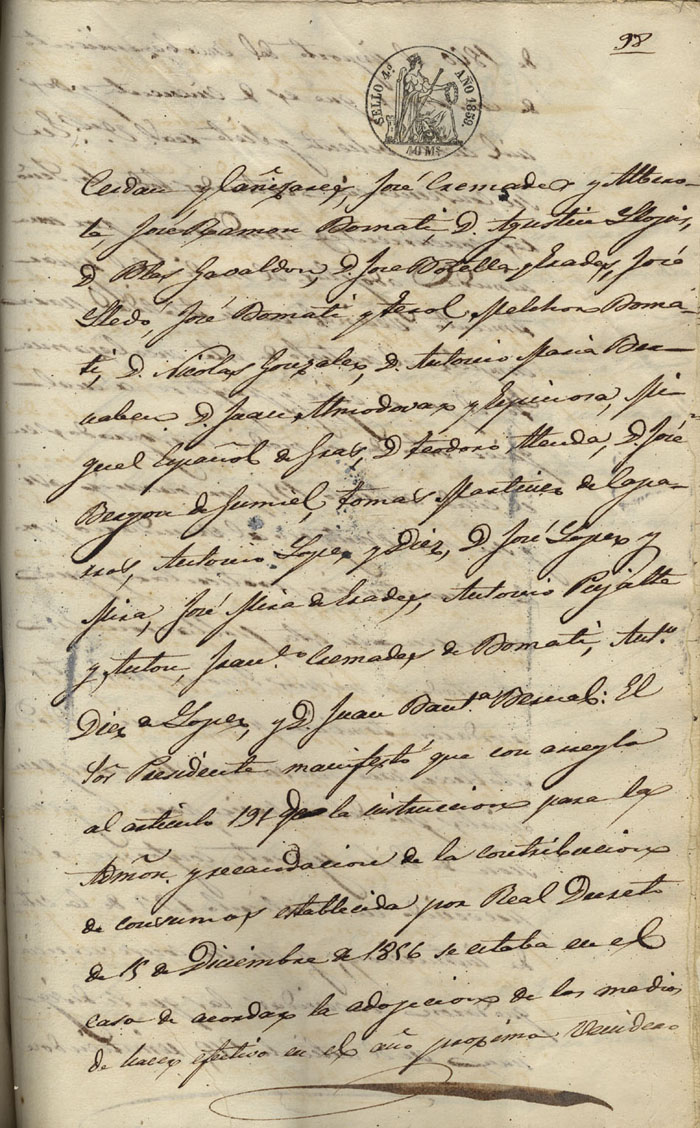 98
SELLO 4º AÑO 1859.
40 Ms
Cerdan y Cañizares, José Cremades y Albero-
la José Ramon Bomati, D. Agustin Llopis,
D. Blas Gavaldon, D. Jose Botella y Prades, José
Lledó José Bomati y Terol, Melchor Boma-
ti, D. Nicolas Gonzalez, D. Antonio Maria Ber-
naben. D. Juan Almodovar y Espinosa, Mi
guel Español de Gras, D. Teodoro Alenda, D. José
Bergon de Jumiel, Tomas Martinez de Capa-
rras, Antonio Lopez y Diez, D. José Lopez y
Mira, José Mira de Prades, Antonio Pujalte
y Anton, Fran.co Cremades de Bomati, Ant.o
Diez de Lopez, y D. Juan Baut.a Bernal: El
Sor Presidente manifestó que con arreglo
al articulo 191 de la instruccion para la
Admōn. y recaudacion de la contribucion
de consumos establecida por Real Decreto
de 15 de Diciembre de 1856 se estaba en el
caso de acordar la adopcion de los medios
de hacer efectivo en el año procsimo venidero